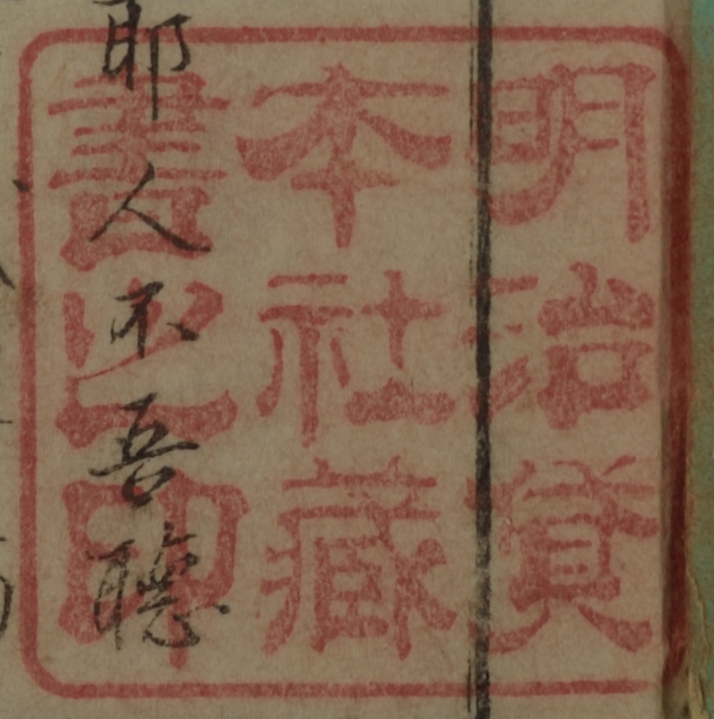 明治貸
本社藏
書之印
耶人不吾聽